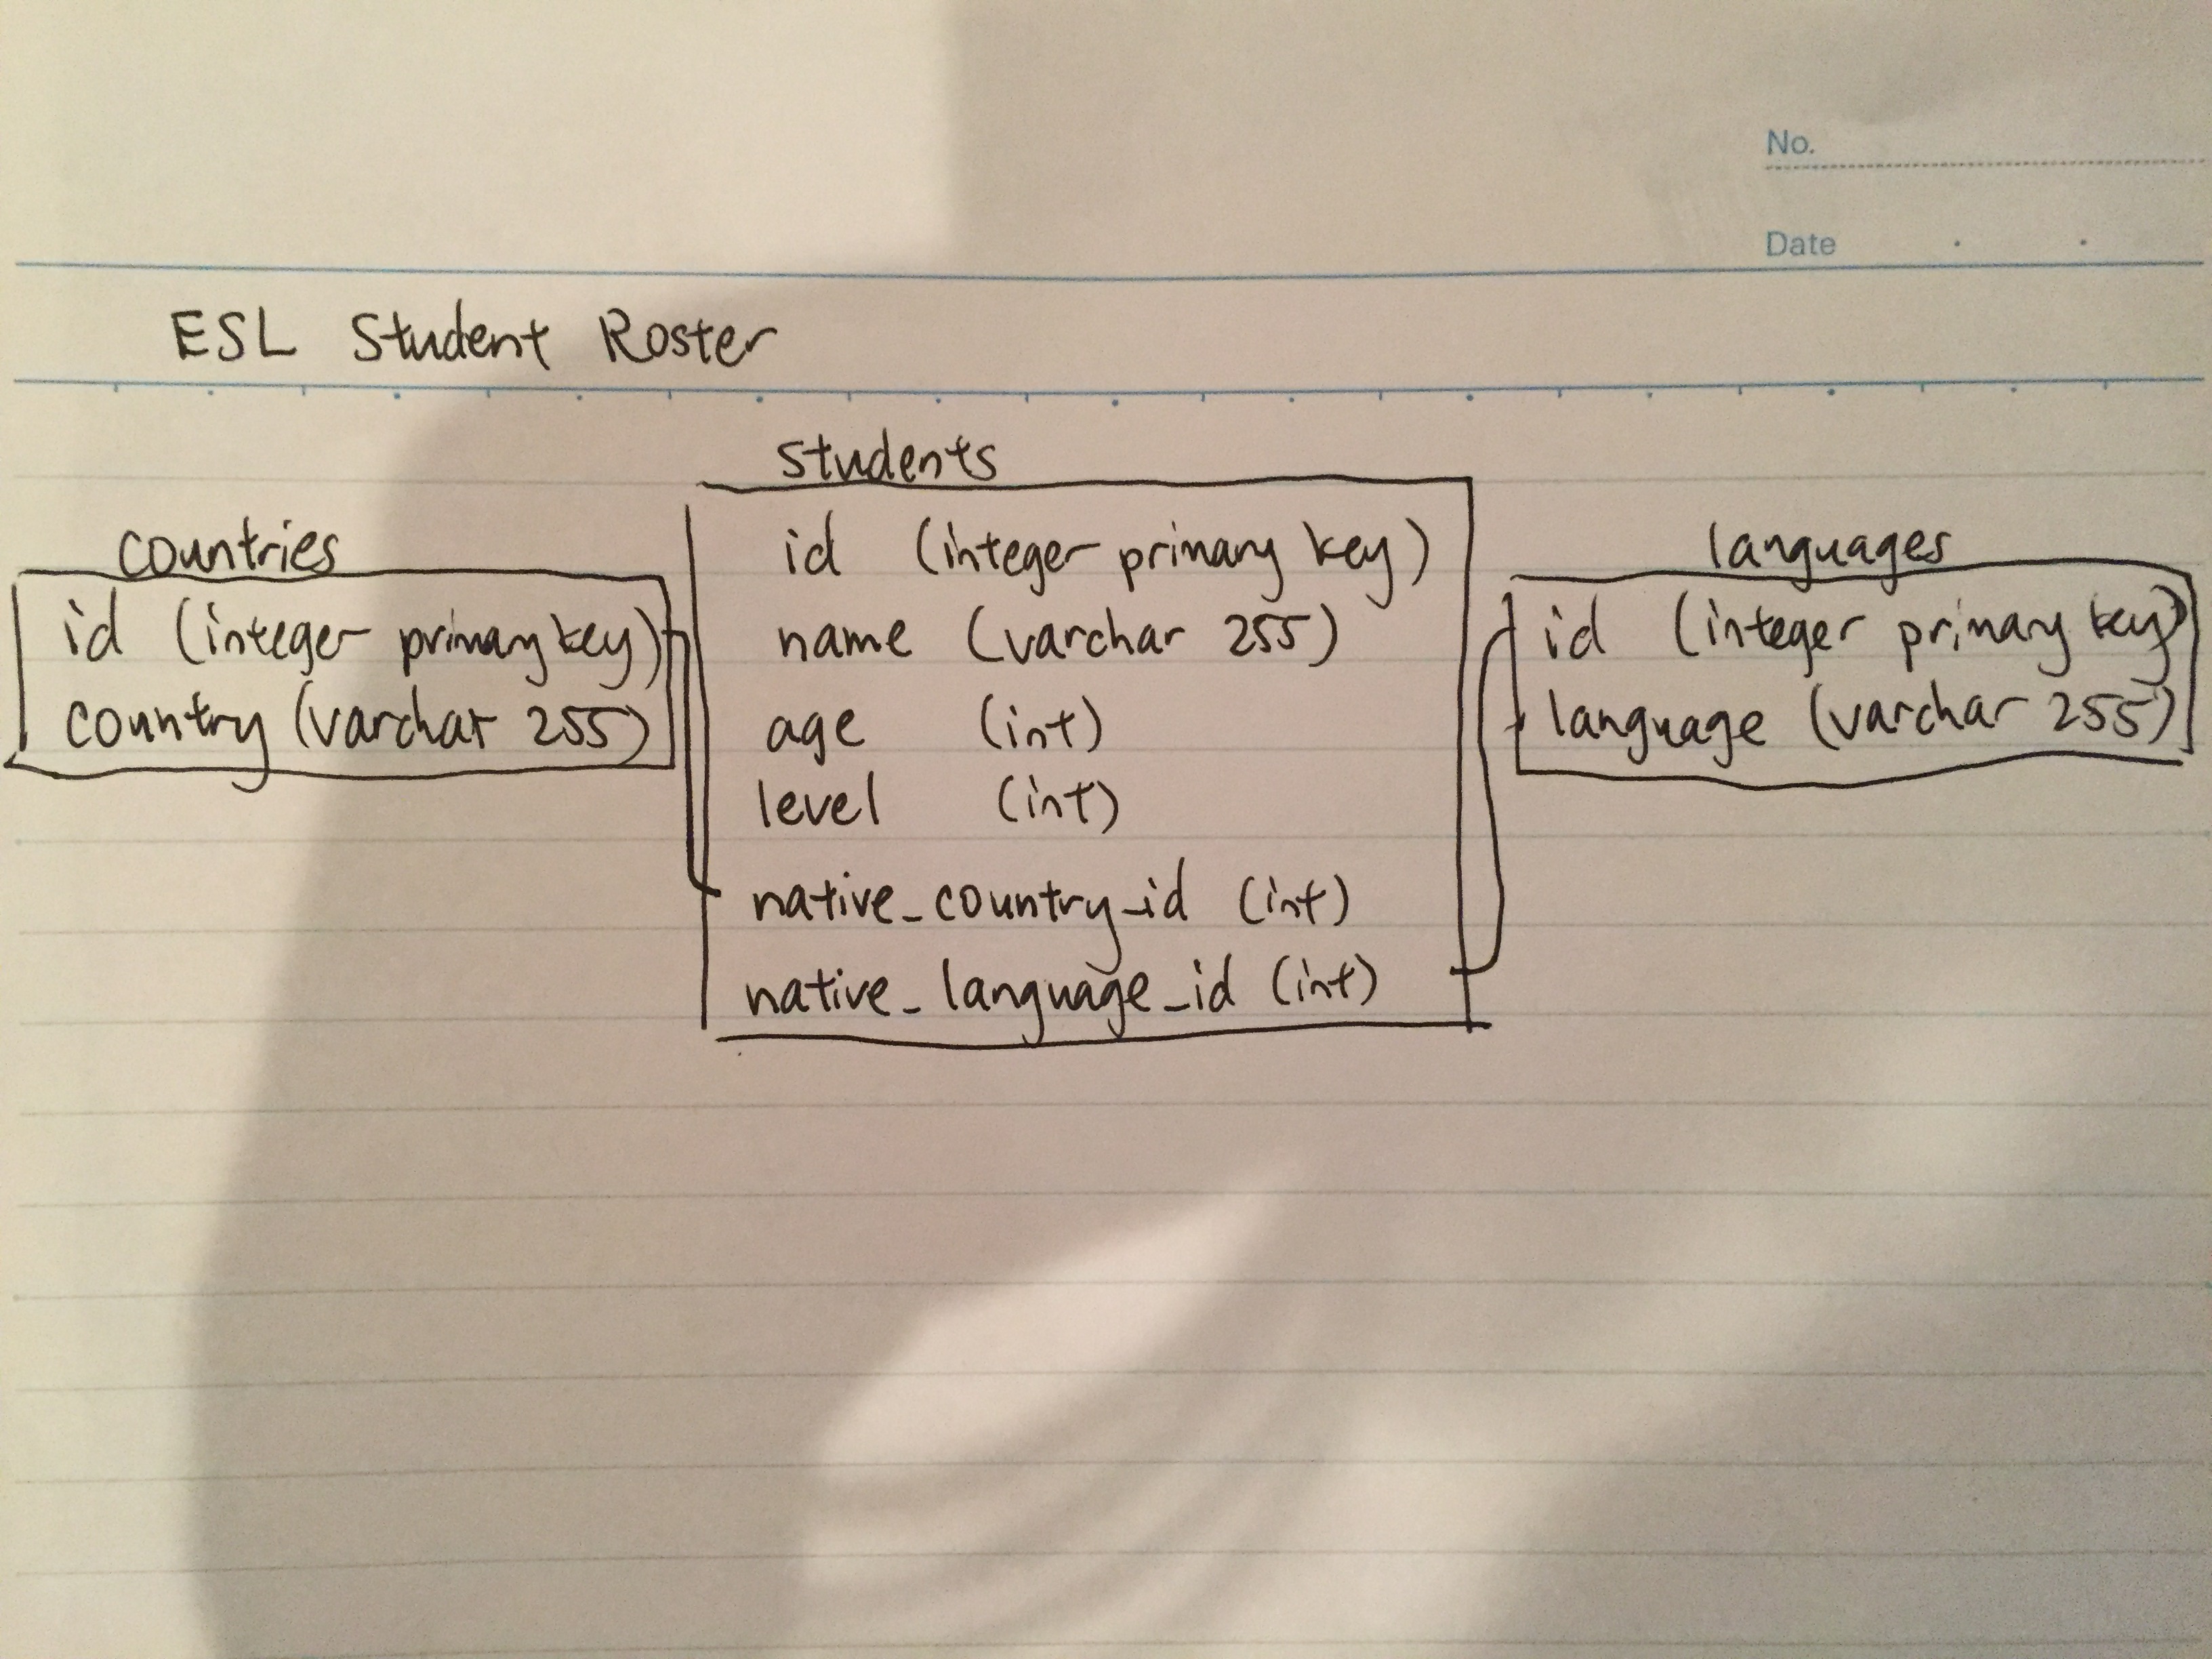 No.
Date
ESL Student Roster
countries
id (integer primary key)
country (varchar 255)
students
id (integer primary key)
name (varchar 255)
age (int)
level (int)
native_country_id (int)
native_language_id (int)
languages
id (integer primary key)
language (varchar 255)